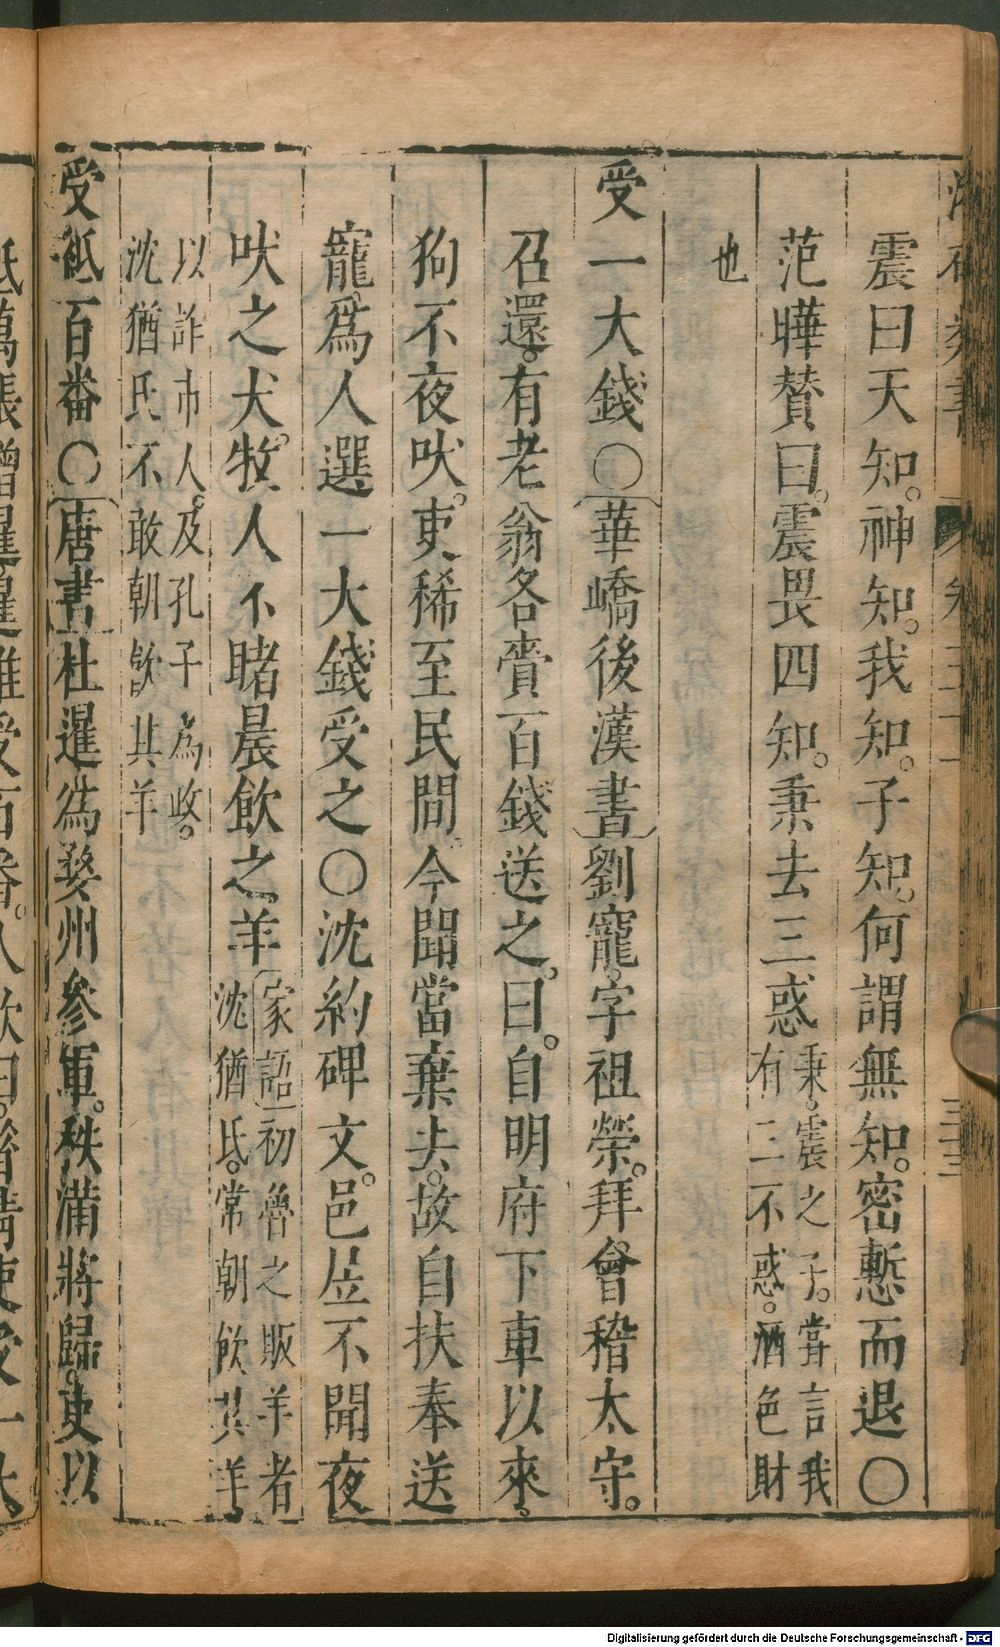 震曰天知。神知。我知。子知。何謂無知。密慙而退〇
范曄贊曰。震畏四知。秉去三惑
秉。震之子。嘗言我
有三不惑。酒色財
也
受一大錢〇華嶠後漢書劉寵。字祖榮。拜會稽太守。
召還。有老翁各賫百錢送之。曰。自明府下車以來。
狗不夜吠。吏稀至民間。今聞當棄去。故自扶奉送
寵。爲人選一大錢受之〇沈約碑文。邑居不聞夜
吠之犬。牧人不睹晨飲之羊
家語初魯之販羊者
沈猶氏。常朝飲其羊。
以詐市人。及孔子為政。
沈猶氏不敢朝飲其羊
受紙百番〇唐書杜暹爲婺州參軍。秩滿將歸。吏以
Digitalisierung gefördert durch die Deutsche Forschungsgemeinschaft - DFG